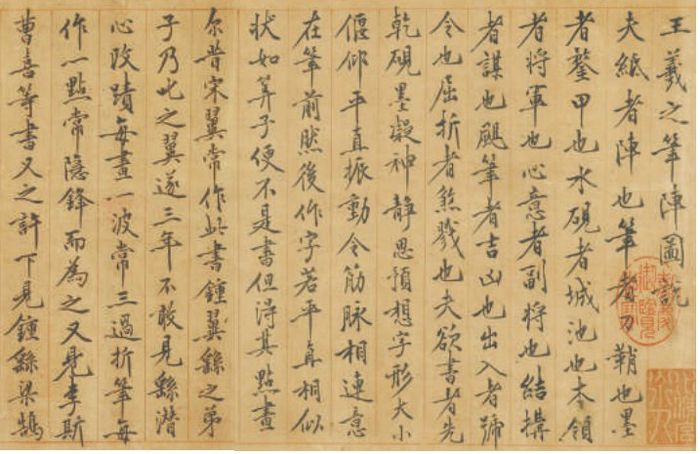 王羲之筆陣圖說
夫紙者陣也筆者刀鞘也墨
者鍪甲也水硯者城池也本領
者將軍也心意者副將也結構
者謀也颺筆者吉凶也出入者號
令也屈折者煞戮也夫欲書者先
乾硯墨凝神靜思預想字形大小
偃仰平直振動令筋脈相連意
在筆前然後作字若平直相似
狀如算子便不是書但得其點畫
尔昔宋翼常作此書鍾翼繇之弟
子乃叱之翼遂三年不敢見繇潛
心改蹟每畫一波常三過折筆每
作一點常隱鋒而為之又見李斯
曹喜等書又之許下見鍾繇梁鵠